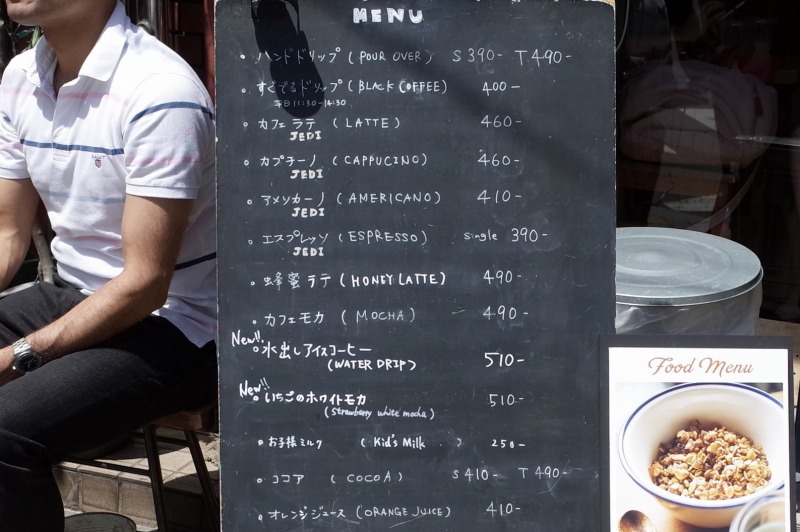 MENU
・ハンドドリップ (POUR OVER) S 390- T 490-
・すぐでるドリップ (BLACK COFFEE) 400-
平日 11:30-14:30
・カフェラテ (LATTE) 460-
JEDI
・カプチーノ (CAPPUCINO) 460-
JEDI
・アメリカーノ (AMERICANO) 410-
JEDI
・エスプレッソ (ESPRESSO) single 390-
JEDI
・蜂蜜ラテ (HONEY LATTE) 490-
・カフェモカ (MOCHA) 490-
New!!
・水出しアイスコーヒー 510-
(WATER DRIP)
New!!
・いちごのホワイトモカ 510-
(Strawberry white mocha)
・お子様ミルク (Kid's Milk) 250-
・ココア (COCOA) S 410- T 490-
・オレンジジュース (ORANGE JUICE) 410-
Food Menu